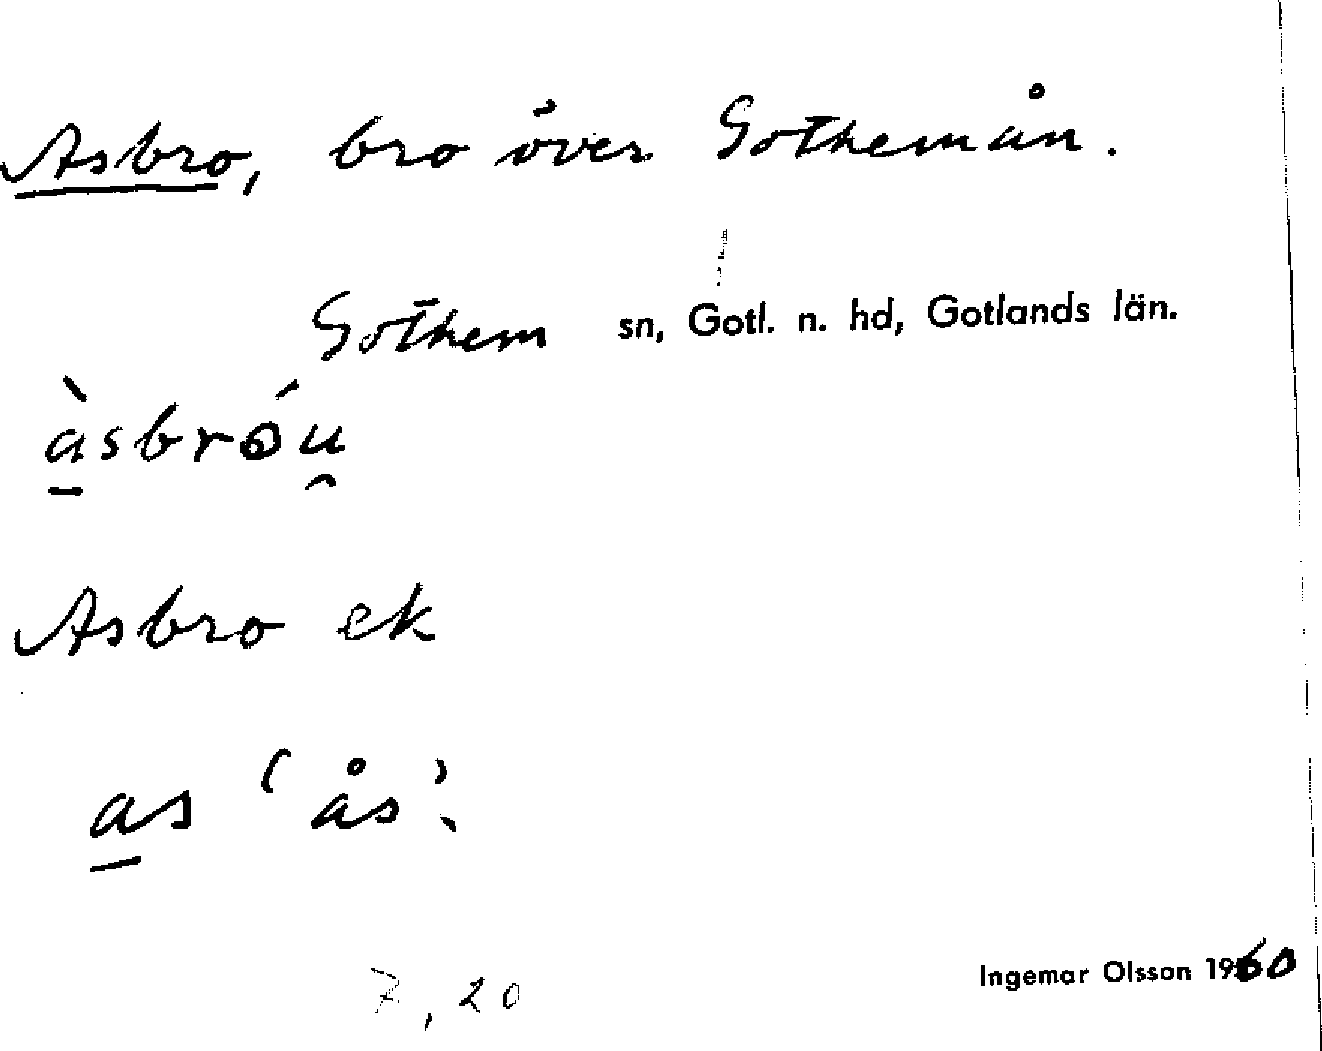 Asbro, bro över Gothemån.
Gothem sn, Gotl. n. hd, Gotlands län.
à̱sbróu̯
Asbro ek
a̱s 'ås'.
7, 20
Ingemar Olsson 1960